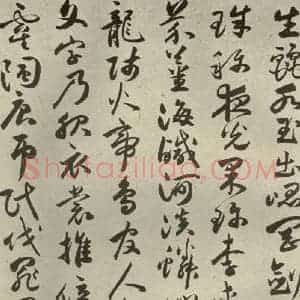 生麗水玉出崑岡劍
珠称夜光果珍李
芥薑海鹹河淡鱗
龍師火帝鳥官人
文字乃服衣裳推位
虞陶唐弔民伐罪